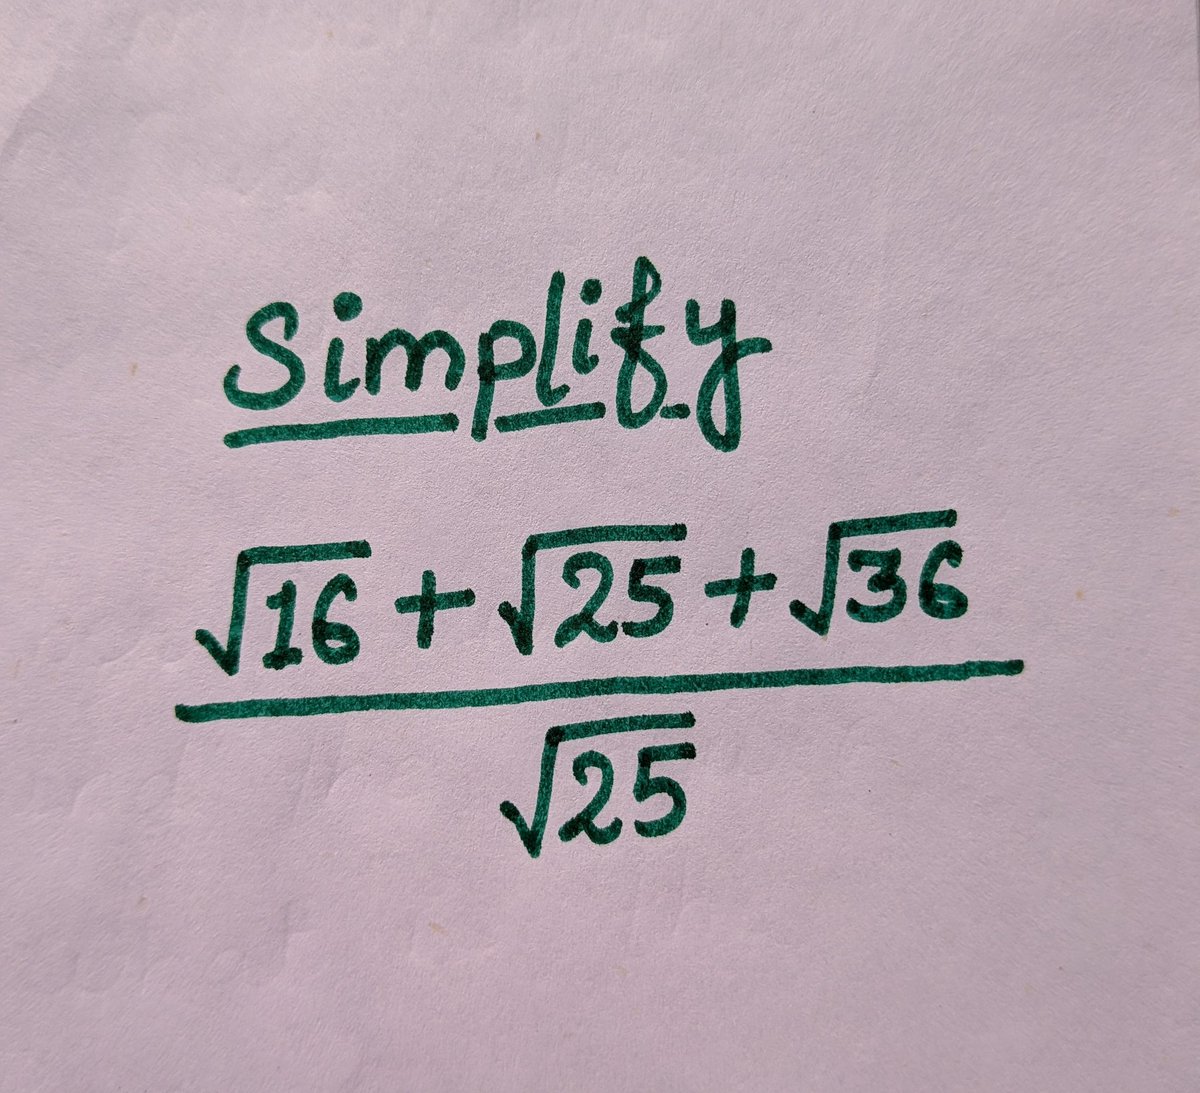 Simplify
√16 + √25 + √36
√25